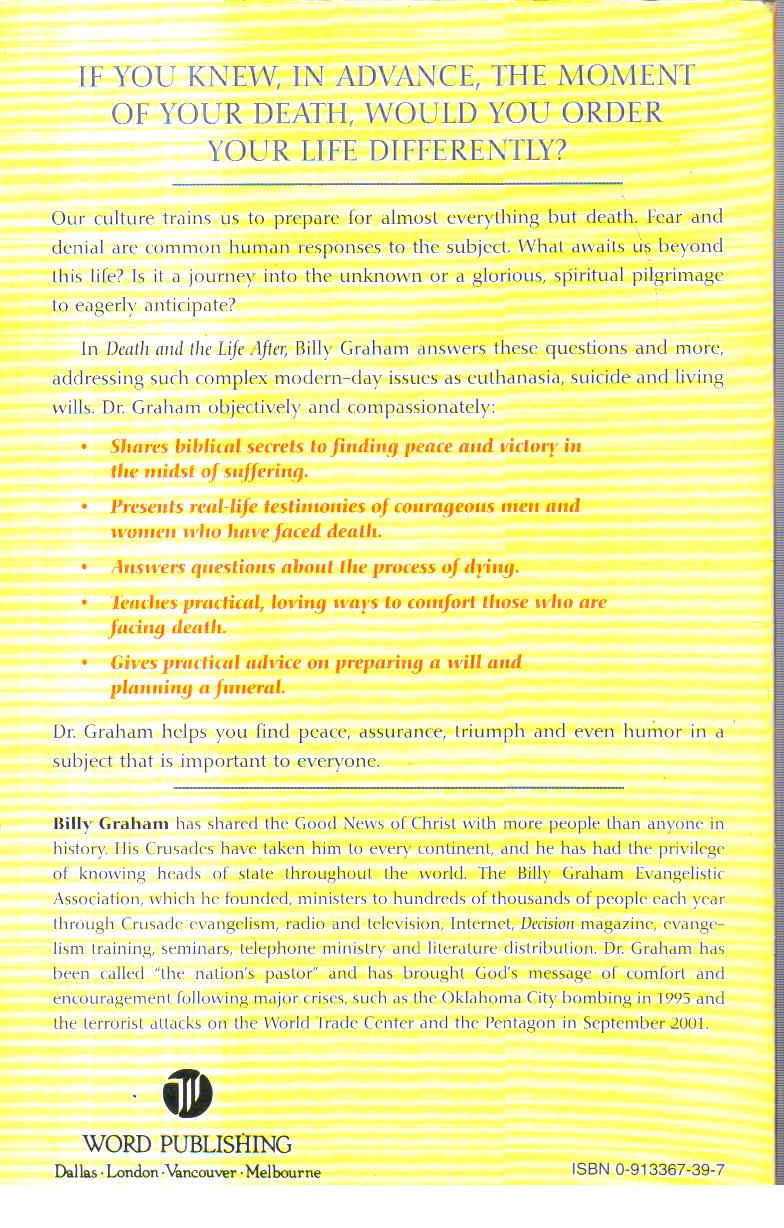 IF YOU KNEW, IN ADVANCE, THE MOMENT
OF YOUR DEATH, WOULD YOU ORDER
YOUR LIFE DIFFERENTLY?
Our culture trains us to prepare for almost everything but death. Fear and
denial are common human responses to the subject. What awaits us beyond
this life? Is it a journey into the unknown or a glorious, spiritual pilgrimage
to eagerly anticipate?
In Death and the Life After, Billy Graham answers these questions and more,
addressing such complex modern-day issues as euthanasia, suicide and living
wills. Dr. Graham objectively and compassionately:
• Shares biblical secrets to finding peace and victory in
the midst of suffering.
• Presents real-life testimonies of courageous men and
women who have faced death.
• Answers questions about the process of dying.
• Teaches practical, loving ways to comfort those who are
facing death.
• Gives practical advice on preparing a will and
planning a funeral.
Dr. Graham helps you find peace, assurance, triumph and even humor in a
subject that is important to everyone.
Billy Graham has shared the Good News of Christ with more people than anyone in
history. His Crusades have taken him to every continent, and he has had the privilege
of knowing heads of state throughout the world. The Billy Graham Evangelistic
Association, which he founded, ministers to hundreds of thousands of people each year
through Crusade evangelism, radio and television, Internet, Decision magazine, evange-
lism training, seminars, telephone ministry and literature distribution. Dr. Graham has
been called "the nation's pastor" and has brought God's message of comfort and
encouragement following major crises, such as the Oklahoma City bombing in 1995 and
the terrorist attacks on the World Trade Center and the Pentagon in September 2001.
W
WORD PUBLISHING
Dallas · London · Vancouver · Melbourne
ISBN 0-913367-39-7